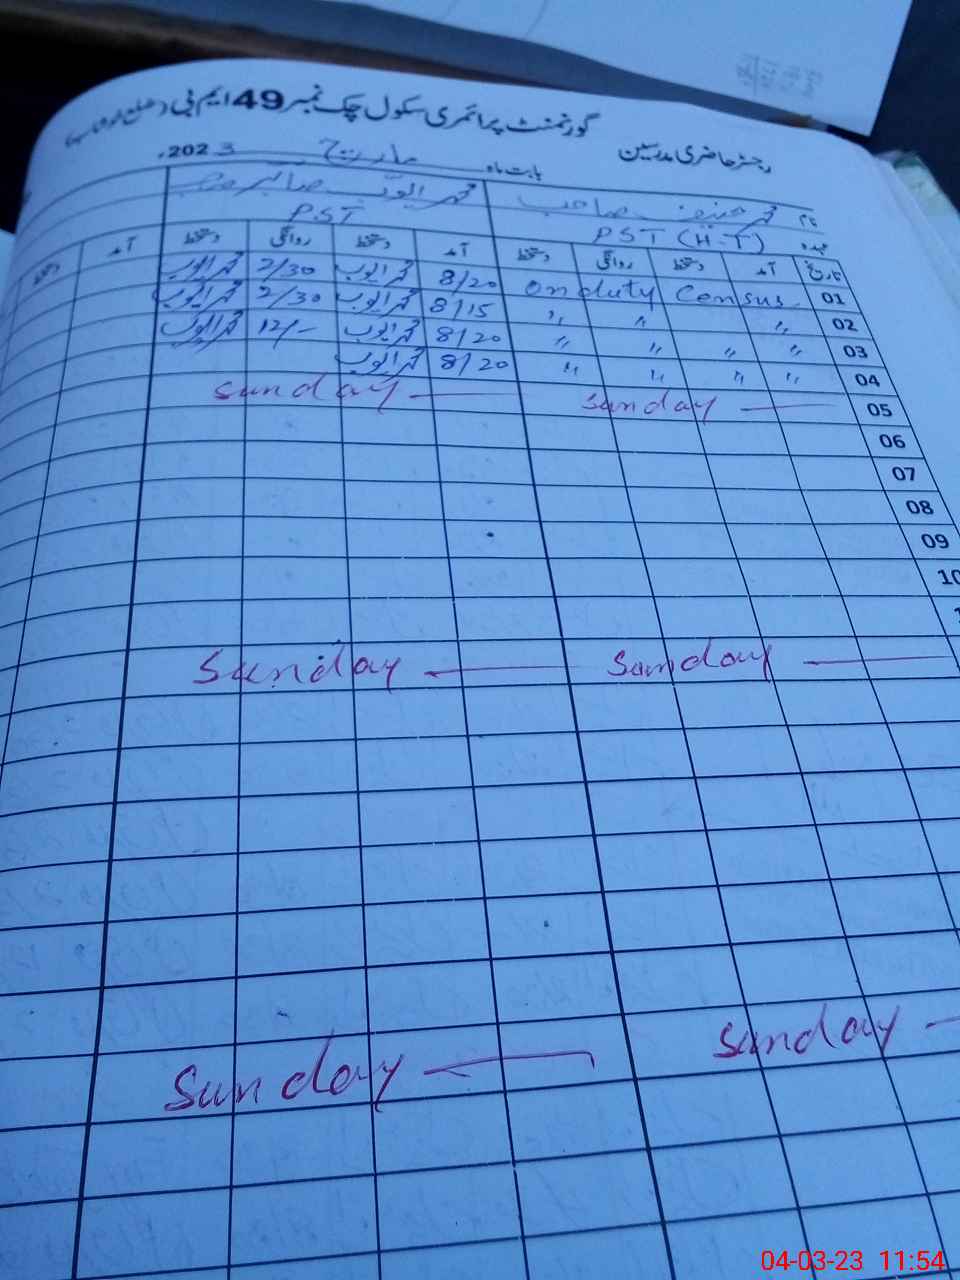 گورنمنٹ پرائمری سکول چک نمبر 49 ایم بی (ضلع خوشاب)
رجسٹر حاضری مدرسین بابت ماہ مارچ 2023ء
نام محمد حنیف صاحب محمد ایوب صابر
عہدہ PST (H-T) PST
تاریخ آمد دستخط روانگی دستخط آمد دستخط روانگی دستخط آمد دستخط
01 On duty Census 8/20 محمد ایوب 2/30 محمد ایوب
02 〃 〃 〃 8/15 محمد ایوب 2/30 محمد ایوب
03 〃 〃 〃 〃 8/20 محمد ایوب 12/- محمد ایوب
04 〃 〃 〃 〃 8/20 محمد ایوب
05 Sunday — Sunday —
06
07
08
09
10
Sunday — Sunday —
Sunday — Sunday —
04-03-23 11:54